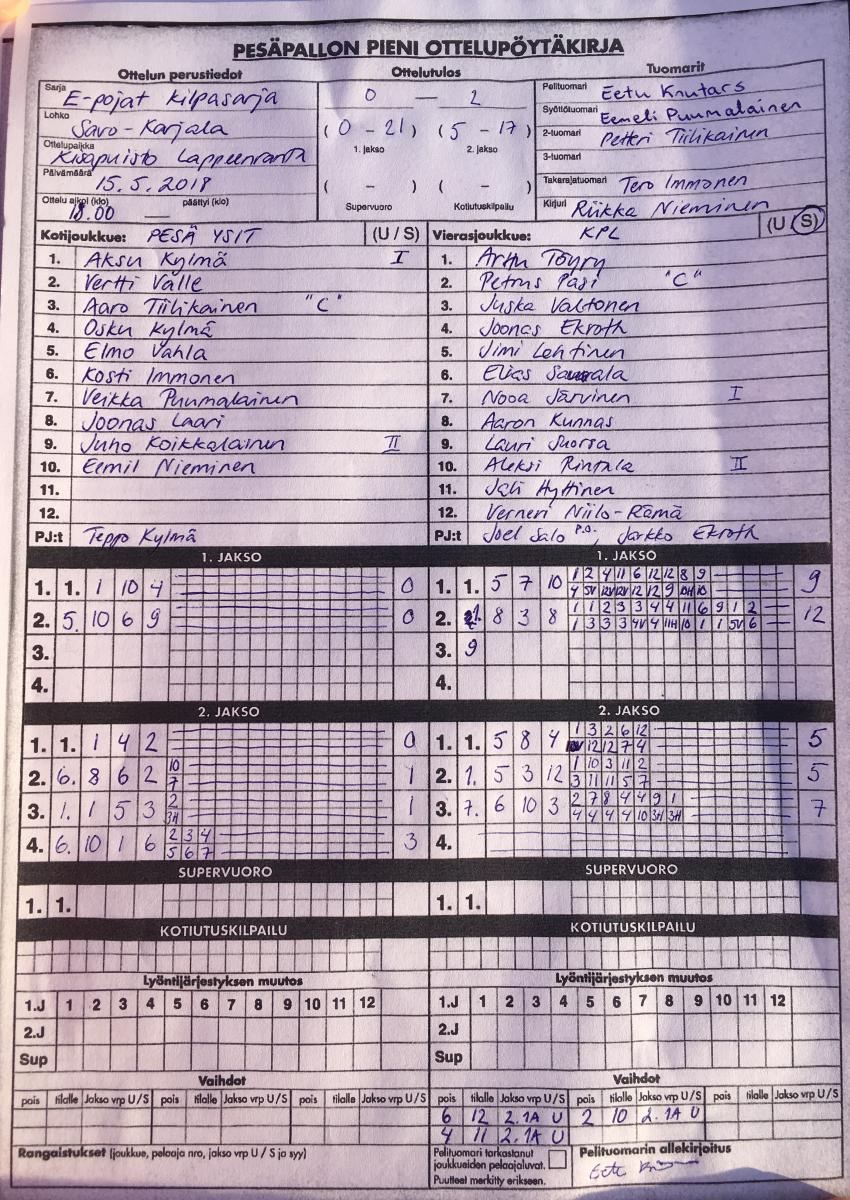 PESÄPALLON PIENI OTTELUPÖYTÄKIRJA
Ottelun perustiedot
Sarja E-pojat kilpasarja
Lohko Savo-Karjala
Ottelupaikka Kisapuisto Lappeenranta
Päivämäärä 15.5.2018
Ottelu alkoi (klo) 18.00 — päättyi (klo)
Ottelutulos
0 — 2
(0 - 21) (5 - 17)
1. jakso 2. jakso
( - ) ( - )
Supervuoro Kotiutuskilpailu
Tuomarit
Pelituomari Eetu Knutars
Syöttötuomari Eemeli Puumalainen
2-tuomari Petri Tiilikainen
3-tuomari
Takarajatuomari Tero Immonen
Kirjuri Riikka Nieminen
Kotijoukkue: PESÄ YSIT (U / S)
1. Aksu Kylmä I
2. Vertti Valle
3. Aaro Tiilikainen "C"
4. Osku Kylmä
5. Elmo Vahla
6. Kosti Immonen
7. Veikka Puumalainen
8. Joonas Laari
9. Juho Koikkalainen II
10. Eemil Nieminen
11.
12.
PJ:t Teppo Kylmä
Vierasjoukkue: KPL (U / S)
1. Arttu Töyry
2. Petrus Pasi "C"
3. Juska Valtonen
4. Joonas Ekroth
5. Jimi Lehtinen
6. Elias
7. Nooa Järvinen I
8. Aaron Kunnas
9. Lauri Suorsa
10. Aleksi Rintala II
11. Jali Hyttinen
12. Verneri Niilo-Rämä
PJ:t Joel Salo P.O., Jarkko Ekroth
1. JAKSO
1. 1. 1 10 4 0
2. 5. 10 6 9 0
3.
4.
2. JAKSO
1. 1. 1 4 2 0
2. 6. 8 6 2 10 1
7
3. 1. 1 5 3 2 1
3H
4. 6. 10 1 6 2 3 4 3
5 6 7
SUPERVUORO
1. 1.
KOTIUTUSKILPAILU
1. JAKSO
1. 1. 5 7 10 1 2 4 11 6 12 12 8 9 9
4 5V 12V 12V 12 12 9 10H 10
2. 1. 8 3 8 1 1 2 3 3 4 4 11 6 9 1 2 12
1 3 3 3 4V 4 11H 10 1 1 5V 6
3. 9
4.
2. JAKSO
1. 1. 5 8 4 1 3 2 6 12 5
12 12 7 4
2. 1. 5 3 12 1 10 3 11 2 5
3 11 11 5 7
3. 7. 6 10 3 2 7 8 4 4 9 1 7
4 4 4 4 10 3H 3H
4.
SUPERVUORO
1. 1.
KOTIUTUSKILPAILU
Lyöntijärjestyksen muutos
1.J 1 2 3 4 5 6 7 8 9 10 11 12
2.J
Sup
Vaihdot
pois tilalle Jakso vrp U/S pois tilalle Jakso vrp U/S pois tilalle Jakso vrp U/S
Rangaistukset (joukkue, pelaaja nro, jakso vrp U / S ja syy)
Lyöntijärjestyksen muutos
1.J 1 2 3 4 5 6 7 8 9 10 11 12
2.J
Sup
Vaihdot
pois tilalle Jakso vrp U/S pois tilalle Jakso vrp U/S pois tilalle Jakso vrp U/S
6 12 2.1A U 2 10 2.1A U
4 11 2.1A U
Pelituomari tarkastanut
joukkueiden pelaajaluvat.
Puutteet merkitty erikseen.
Pelituomarin allekirjoitus
Eetu